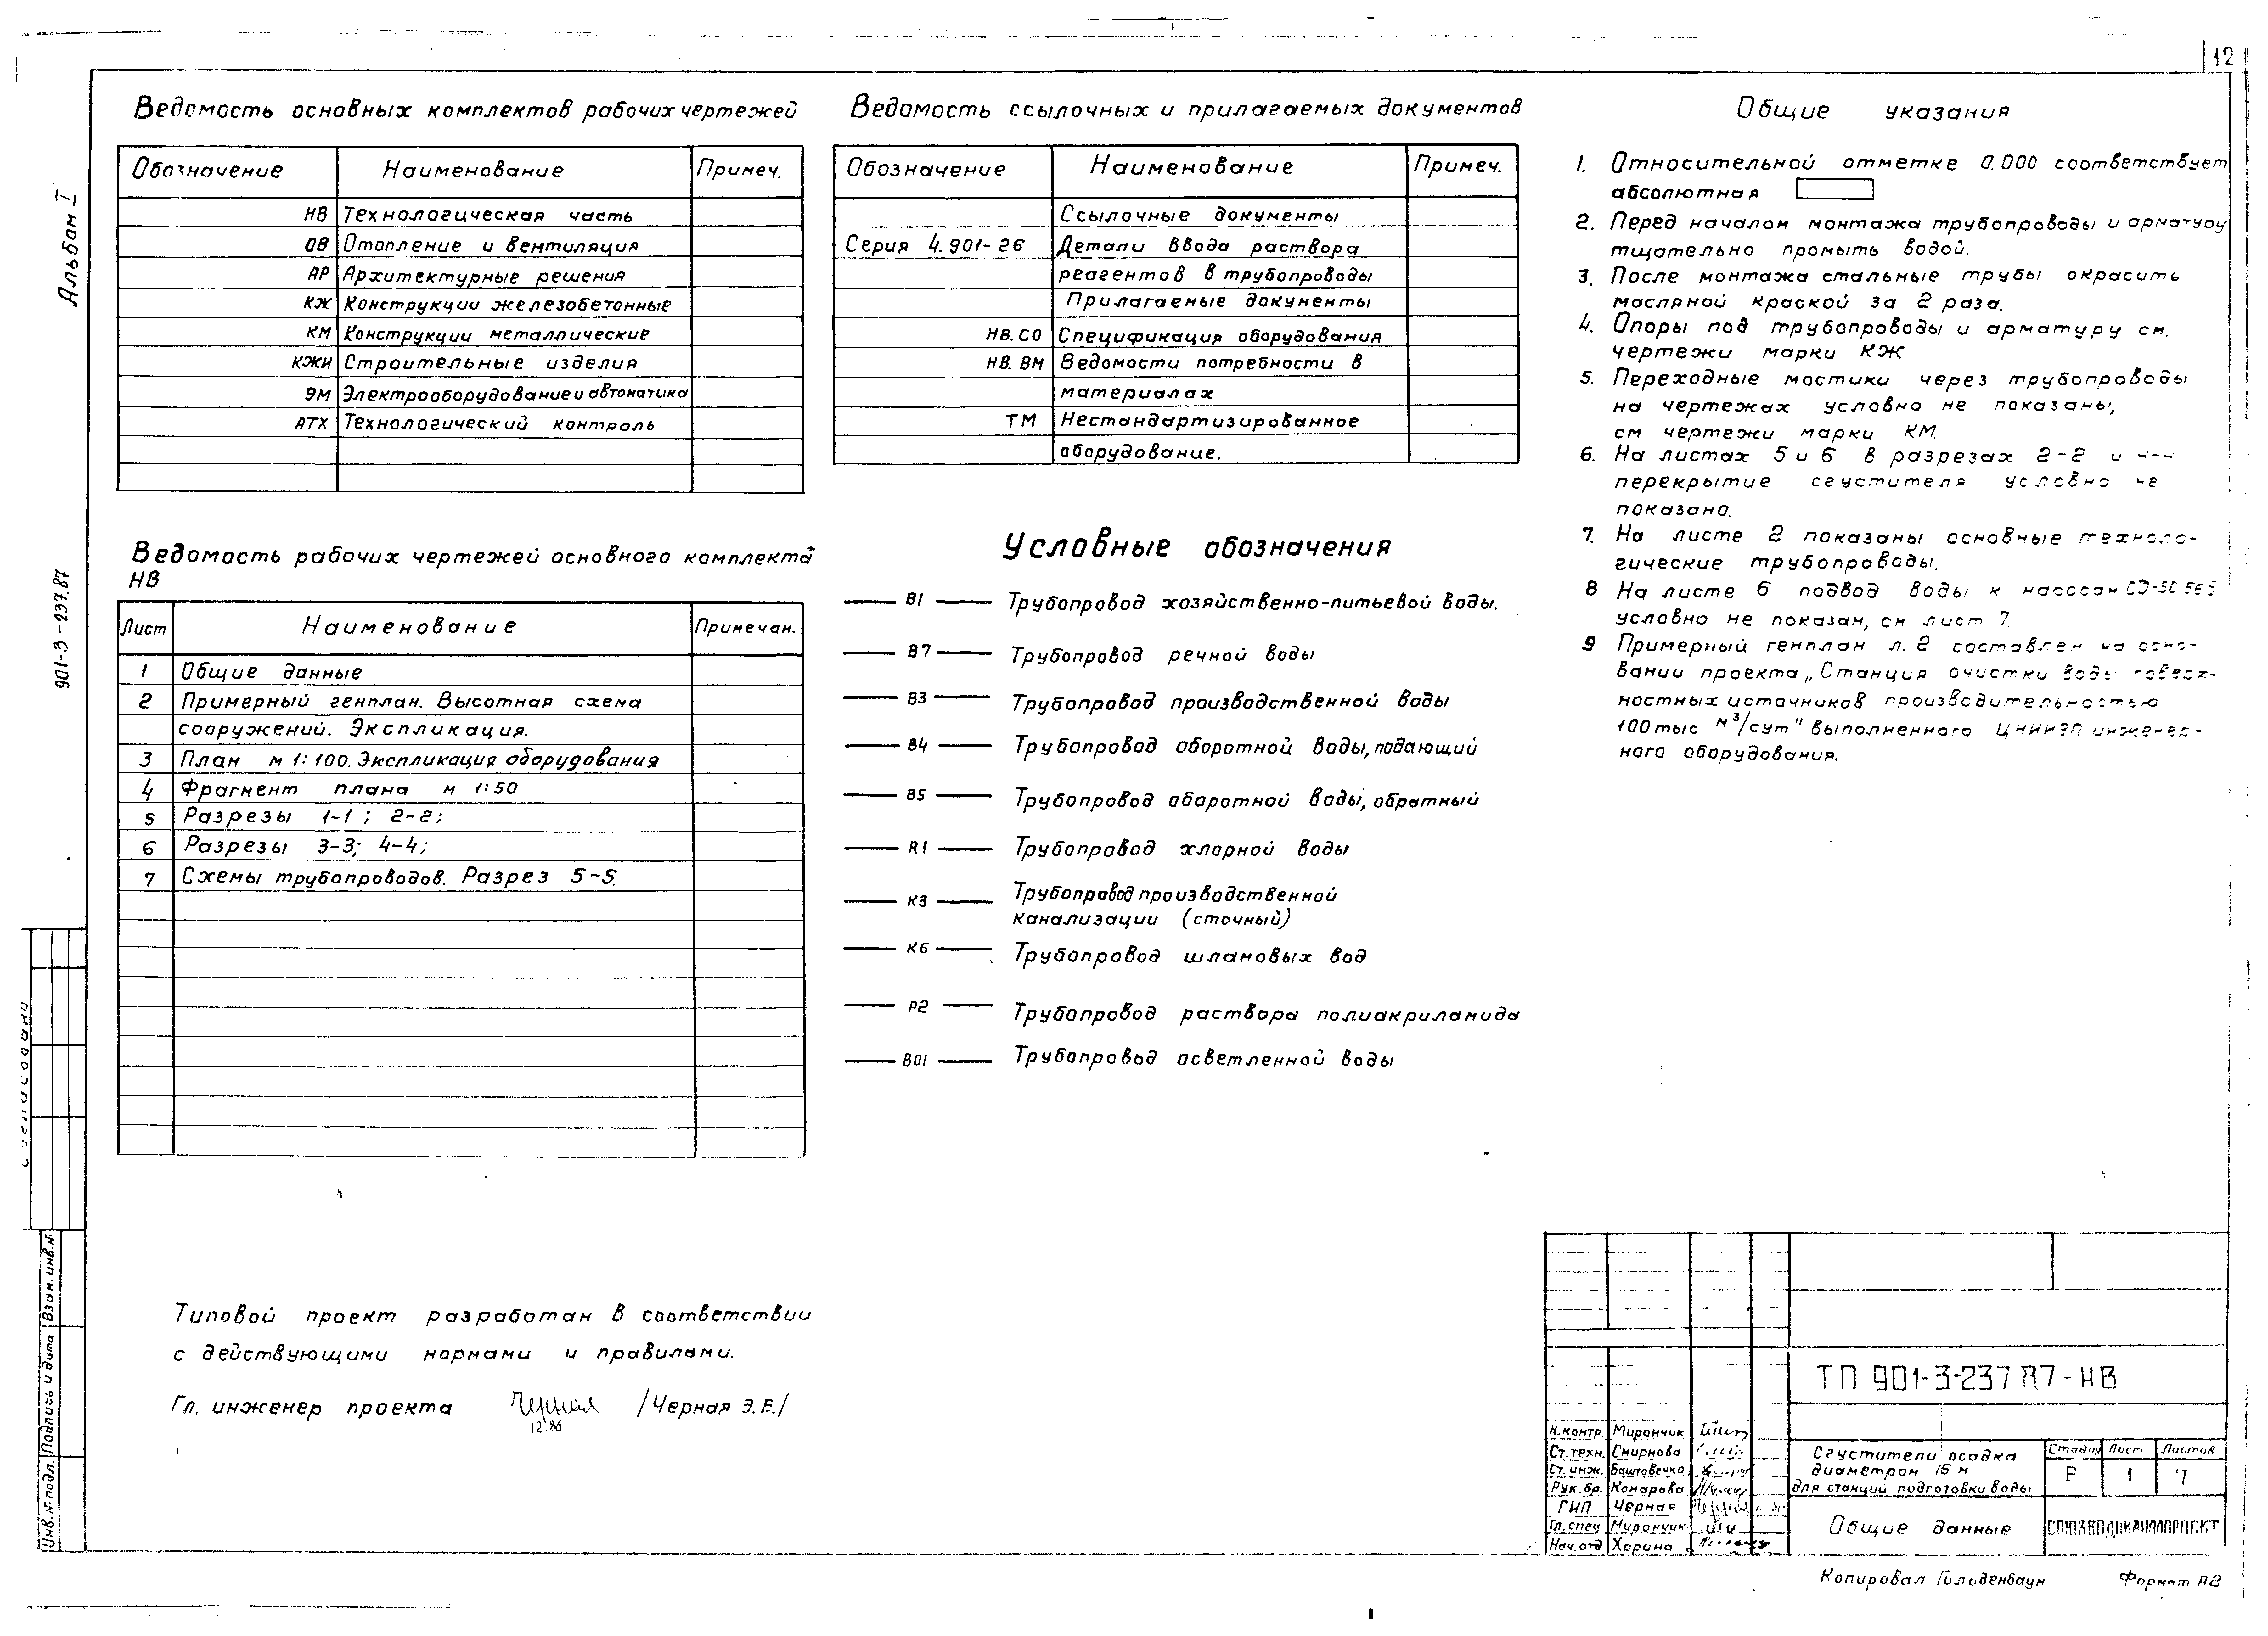 12
Альбом I
901-3-237.87
Ведомость основных комплектов рабочих чертежей
Обозначение Наименование Примеч.
НВ Технологическая часть
ОВ Отопление и вентиляция
АР Архитектурные решения
КЖ Конструкции железобетонные
КМ Конструкции металлические
КЖИ Строительные изделия
ЭМ Электрооборудование и автоматика
АТХ Технологический контроль
Ведомость рабочих чертежей основного комплекта
НВ
Лист Наименование Примечан.
1 Общие данные
2 Примерный генплан. Высотная схема
сооружений. Экспликация.
3 План м 1:100. Экспликация оборудования
4 Фрагмент плана м 1:50
5 Разрезы 1-1; 2-2;
6 Разрезы 3-3; 4-4;
7 Схемы трубопроводов. Разрез 5-5.
Типовой проект разработан в соответствии
с действующими нормами и правилами.
Гл. инженер проекта Черная /Черная Э.Е./
12.86
Ведомость ссылочных и прилагаемых документов
Обозначение Наименование Примеч.
Ссылочные документы
Серия 4.901-26 Детали ввода раствора
реагентов в трубопроводы
Прилагаемые документы
НВ.СО Спецификация оборудования
НВ.ВМ Ведомости потребности в
материалах
ТМ Нестандартизированное
оборудование.
Условные обозначения
В1 Трубопровод хозяйственно-питьевой воды.
В7 Трубопровод речной воды
В3 Трубопровод производственной воды
В4 Трубопровод оборотной воды, подающий
В5 Трубопровод оборотной воды, обратный
R1 Трубопровод хлорной воды
К3 Трубопровод производственной
канализации (сточный)
К6 Трубопровод шламовых вод
Р2 Трубопровод раствора полиакриламида
В01 Трубопровод осветленной воды
Общие указания
1. Относительной отметке 0.000 соответствует
абсолютная
2. Перед началом монтажа трубопроводы и арматуру
тщательно промыть водой.
3. После монтажа стальные трубы окрасить
масляной краской за 2 раза.
4. Опоры под трубопроводы и арматуру см.
чертежи марки КЖ
5. Переходные мостики через трубопроводы
на чертежах условно не показаны,
см чертежи марки КМ.
6. На листах 5 и 6 в разрезах 2-2 и
перекрытие сгустителя условно не
показано.
7. На листе 2 показаны основные техноло-
гические трубопроводы.
8 На листе 6 подвод воды к насосам
условно не показан, см. лист 7.
9 Примерный генплан л. 2 составлен на осно-
вании проекта „Станция очистки воды поверх-
ностных источников производительностью
100 тыс м³/сут" выполненного ЦНИИЭП инженер-
ного оборудования.
Согласовано
Инв.№ подл. Подпись и дата Взан. инв.№
ТП 901-3-237 87-НВ
Н.контр. Мирончик
Ст.техн. Смирнова
Ст. инж. Башловечко
Рук. бр. Комарова
ГИП Черная
Гл. спец Мирончик
Нач. отд Харина
Сгустители осадка
диаметром 15 м
для станций подготовки воды
Стадия Лист Листов
Р 1 7
Общие данные СОЮЗВОДОКАНАЛПРОЕКТ
Копировал Гильденбаум Формат А2